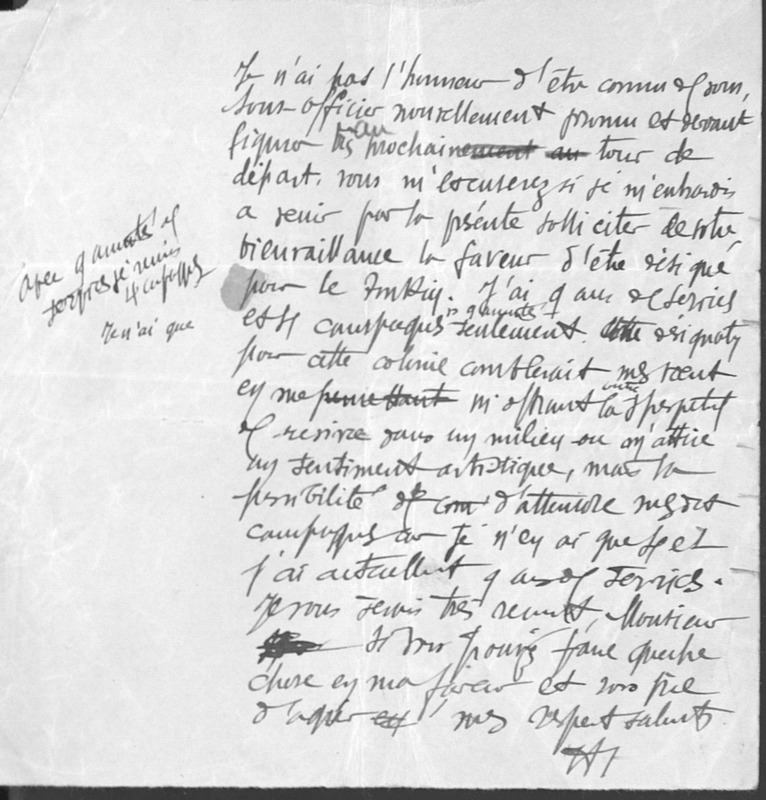 Je n'ai pas l'honneur d'être connu de vous,
sous-officier nouvellement promu et devant
figurer au prochainement au tour de
départ, vous m'excuserez si je m'enhardis
a venir par la présente solliciter de votre
bienveillance la faveur d'être désigné
pour le Tonkin. J'ai 9 ans de services
et 4 campagnes seulement. Cette désignation
pour cette colonie comblerait mes vœux
en me permettant m'offrant outre la perspective
de revivre dans un milieu ou m'attire
un sentiment artistique, mais la
possibilité de com d'atteindre mes dix
campagnes car je n'en ai que 4 et
j'ai actuellement 9 ans de services.
Je vous serais très reconnt, Monsieur
si vous pouviez faire quelque
chose en ma faveur et vous prie
d'agréer mes respect saluts.
avec 9 années de
services je réunis
4 campagnes
Je n'ai que